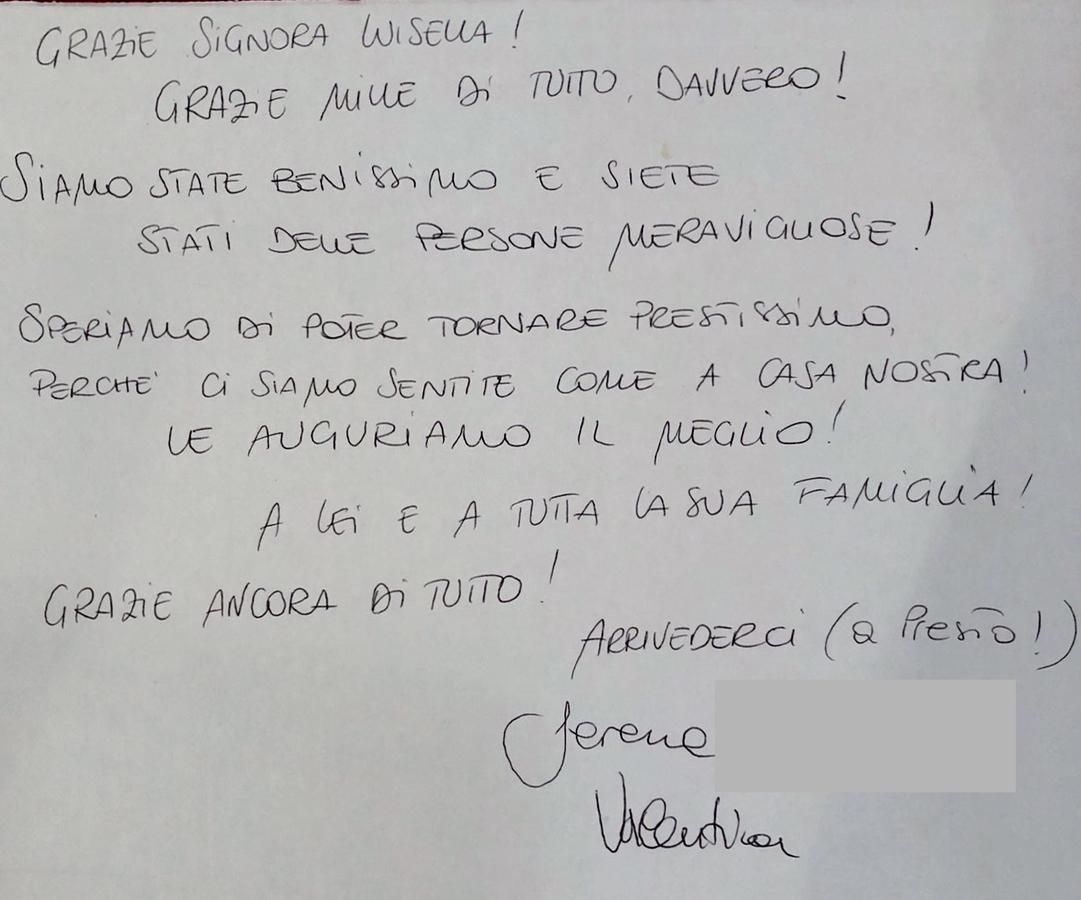 GRAZIE SIGNORA LUISELLA!
GRAZIE MILLE DI TUTTO, DAVVERO!
SIAMO STATE BENISSIMO E SIETE
STATI DELLE PERSONE MERAVIGLIOSE!
SPERIAMO DI POTER TORNARE PRESTISSIMO,
PERCHE' CI SIAMO SENTITE COME A CASA NOSTRA!
LE AUGURIAMO IL MEGLIO!
A LEI E A TUTTA LA SUA FAMIGLIA!
GRAZIE ANCORA DI TUTTO!
ARRIVEDERCI (a Presto!)
Serena
Valentina